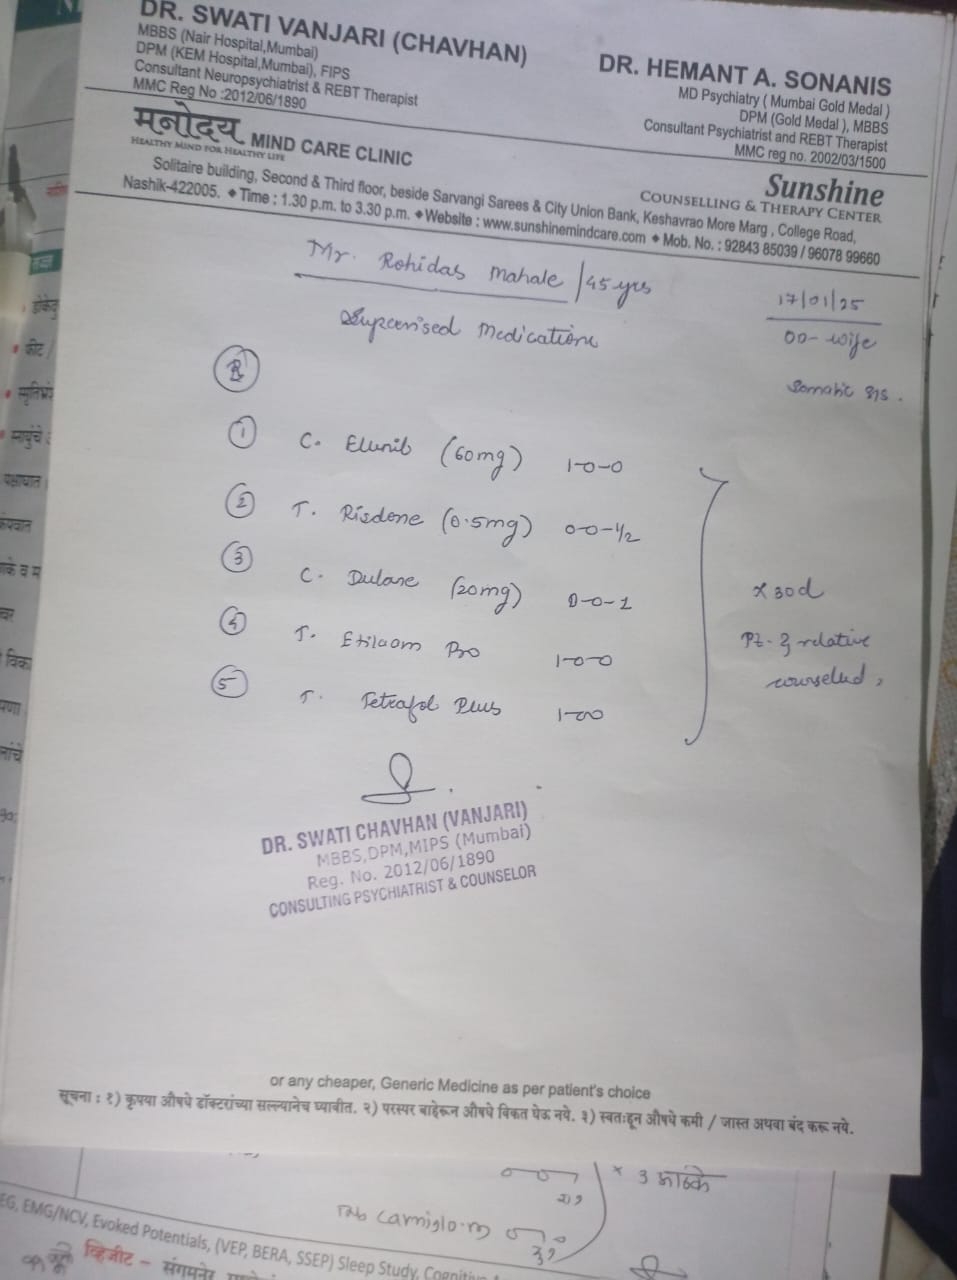 DR. SWATI VANJARI (CHAVHAN)
MBBS (Nair Hospital,Mumbai)
DPM (KEM Hospital,Mumbai), FIPS
Consultant Neuropsychiatrist & REBT Therapist
MMC Reg No :2012/06/1890
DR. HEMANT A. SONANIS
MD Psychiatry ( Mumbai Gold Medal )
DPM (Gold Medal ), MBBS
Consultant Psychiatrist and REBT Therapist
MMC reg no. 2002/03/1500
मनोदय MIND CARE CLINIC
HEALTHY MIND FOR HEALTHY LIFE
Sunshine
COUNSELLING & THERAPY CENTER
Solitaire building, Second & Third floor, beside Sarvangi Sarees & City Union Bank, Keshavrao More Marg , College Road,
Nashik-422005. ◆ Time : 1.30 p.m. to 3.30 p.m. ◆ Website : www.sunshinemindcare.com ◆ Mob. No. : 92843 85039 / 96078 99660
Mr. Rohidas Mahale /45 yrs
17/01/25
Supervised Medications
OD- wife
Somatic
R
1 C. Elunib (60mg) 1-0-0
2 T. Risdone (0.5mg) 0-0-1/2
3 C. Dulane (20mg) 0-0-1
x 30d
4 T. Etilaam Pro 1-0-0
Pt. & relative
counselled,
5 T. Tetrafol Plus 1-00
DR. SWATI CHAVHAN (VANJARI)
MBBS,DPM,MIPS (Mumbai)
Reg. No. 2012/06/1890
CONSULTING PSYCHIATRIST & COUNSELOR
or any cheaper, Generic Medicine as per patient's choice
सूचना : १) कृपया औषधे डॉक्टरांच्या सल्ल्यानेच घ्यावीत. २) परस्पर बाहेरून औषधे विकत घेऊ नये. ३) स्वतःहून औषधे कमी / जास्त अथवा बंद करू नये.
x 3
Tab
EG, EMG/NCV, Evoked Potentials, (VEP, BERA, SSEP) Sleep Study,
व्हिजीट – संगमनेर